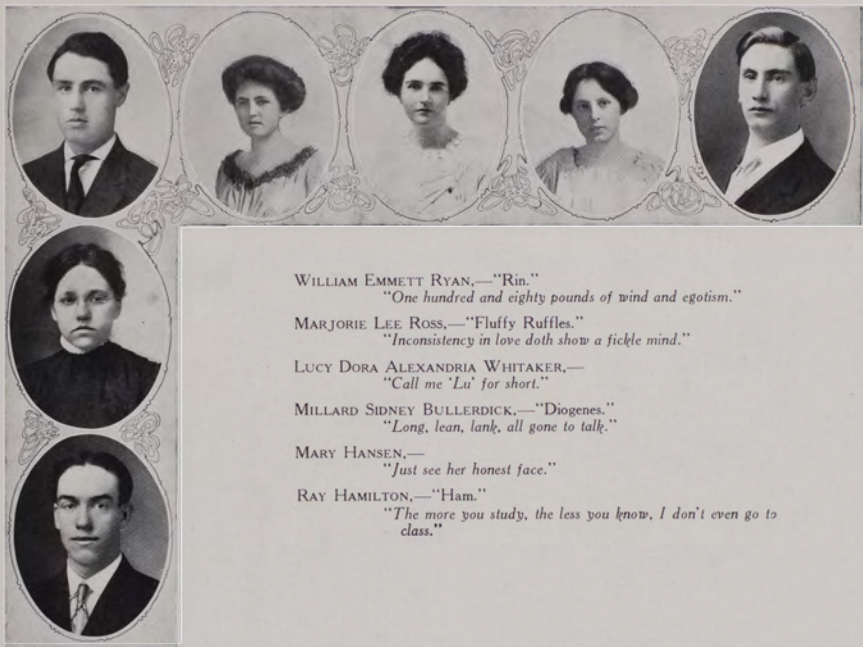 WILLIAM EMMETT RYAN,—"Rin."
"One hundred and eighty pounds of wind and egotism."
MARJORIE LEE ROSS,—"Fluffy Ruffles."
"Inconsistency in love doth show a fickle mind."
LUCY DORA ALEXANDRIA WHITAKER,—
"Call me 'Lu' for short."
MILLARD SIDNEY BULLERDICK,—"Diogenes."
"Long, lean, lank, all gone to talk."
MARY HANSEN,—
"Just see her honest face."
RAY HAMILTON,—"Ham."
"The more you study, the less you know, I don't even go to
class."